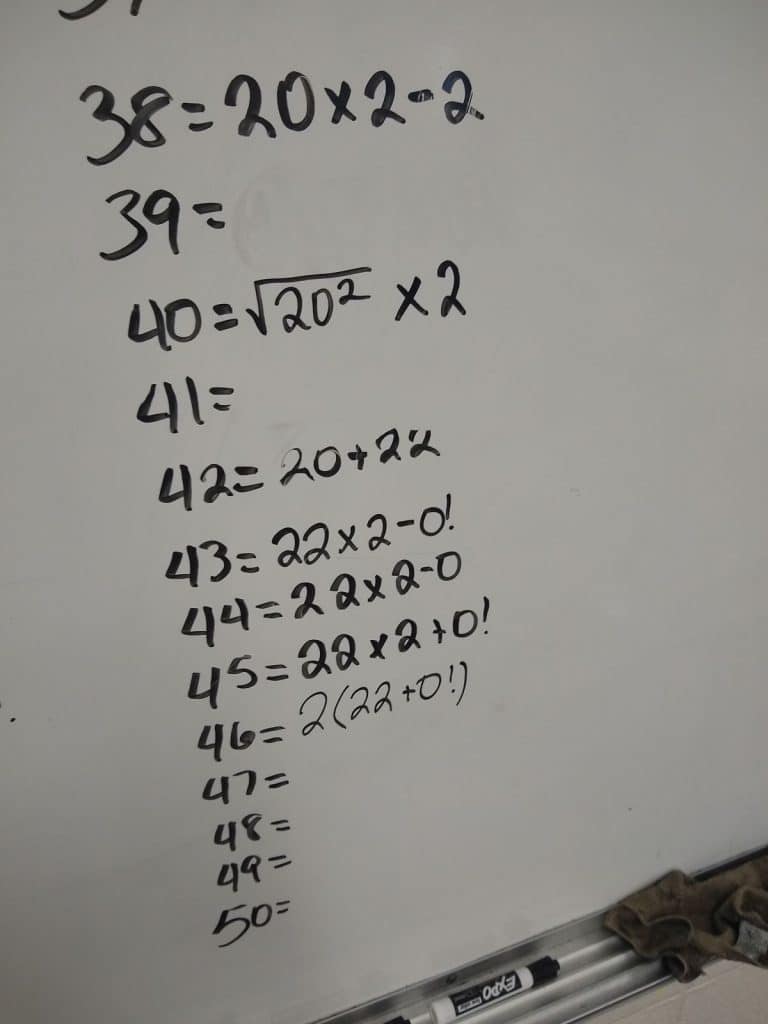 38=20×2-2
39=
40=√20² ×2
41=
42=20+22
43=22×2-0!
44=22×2-0
45=22×2+0!
46=2(22+0!)
47=
48=
49=
50=
EXPO